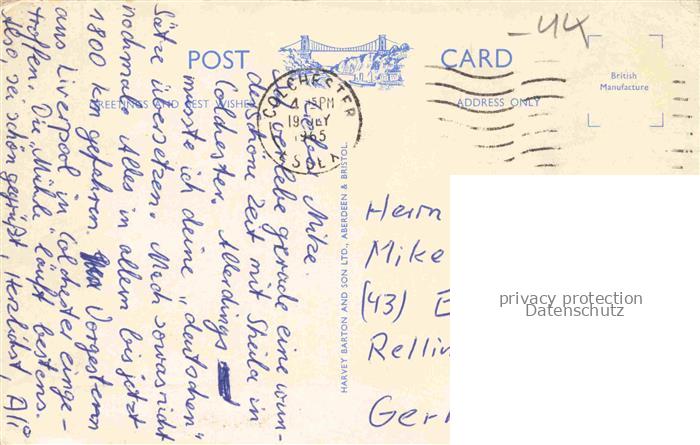 -44
POST CARD
British
Manufacture
GREETINGS AND BEST WISHES
ADDRESS ONLY
COLCHESTER
4-15PM
19 JLY
1965
ESSEX
Mike.
verlebe gerade eine wun-
derschöne Zeit mit Sheila in
Colchester. Allerdings
müsste ich deine „deutschen"
Sätze übersetzen. Mach sowas nicht
nochmal. Alles in allem bis jetzt
1800 km gefahren. Vorgestern
aus Liverpool in Colchester einge-
troffen. Die „Mühle" läuft bestens.
Also, sei schön gegrüßt, Herzlichst,
HARVEY BARTON AND SON LTD., ABERDEEN & BRISTOL.
Herrn
Mike
(43) E
Rellin
Ger
privacy protection
Datenschutz